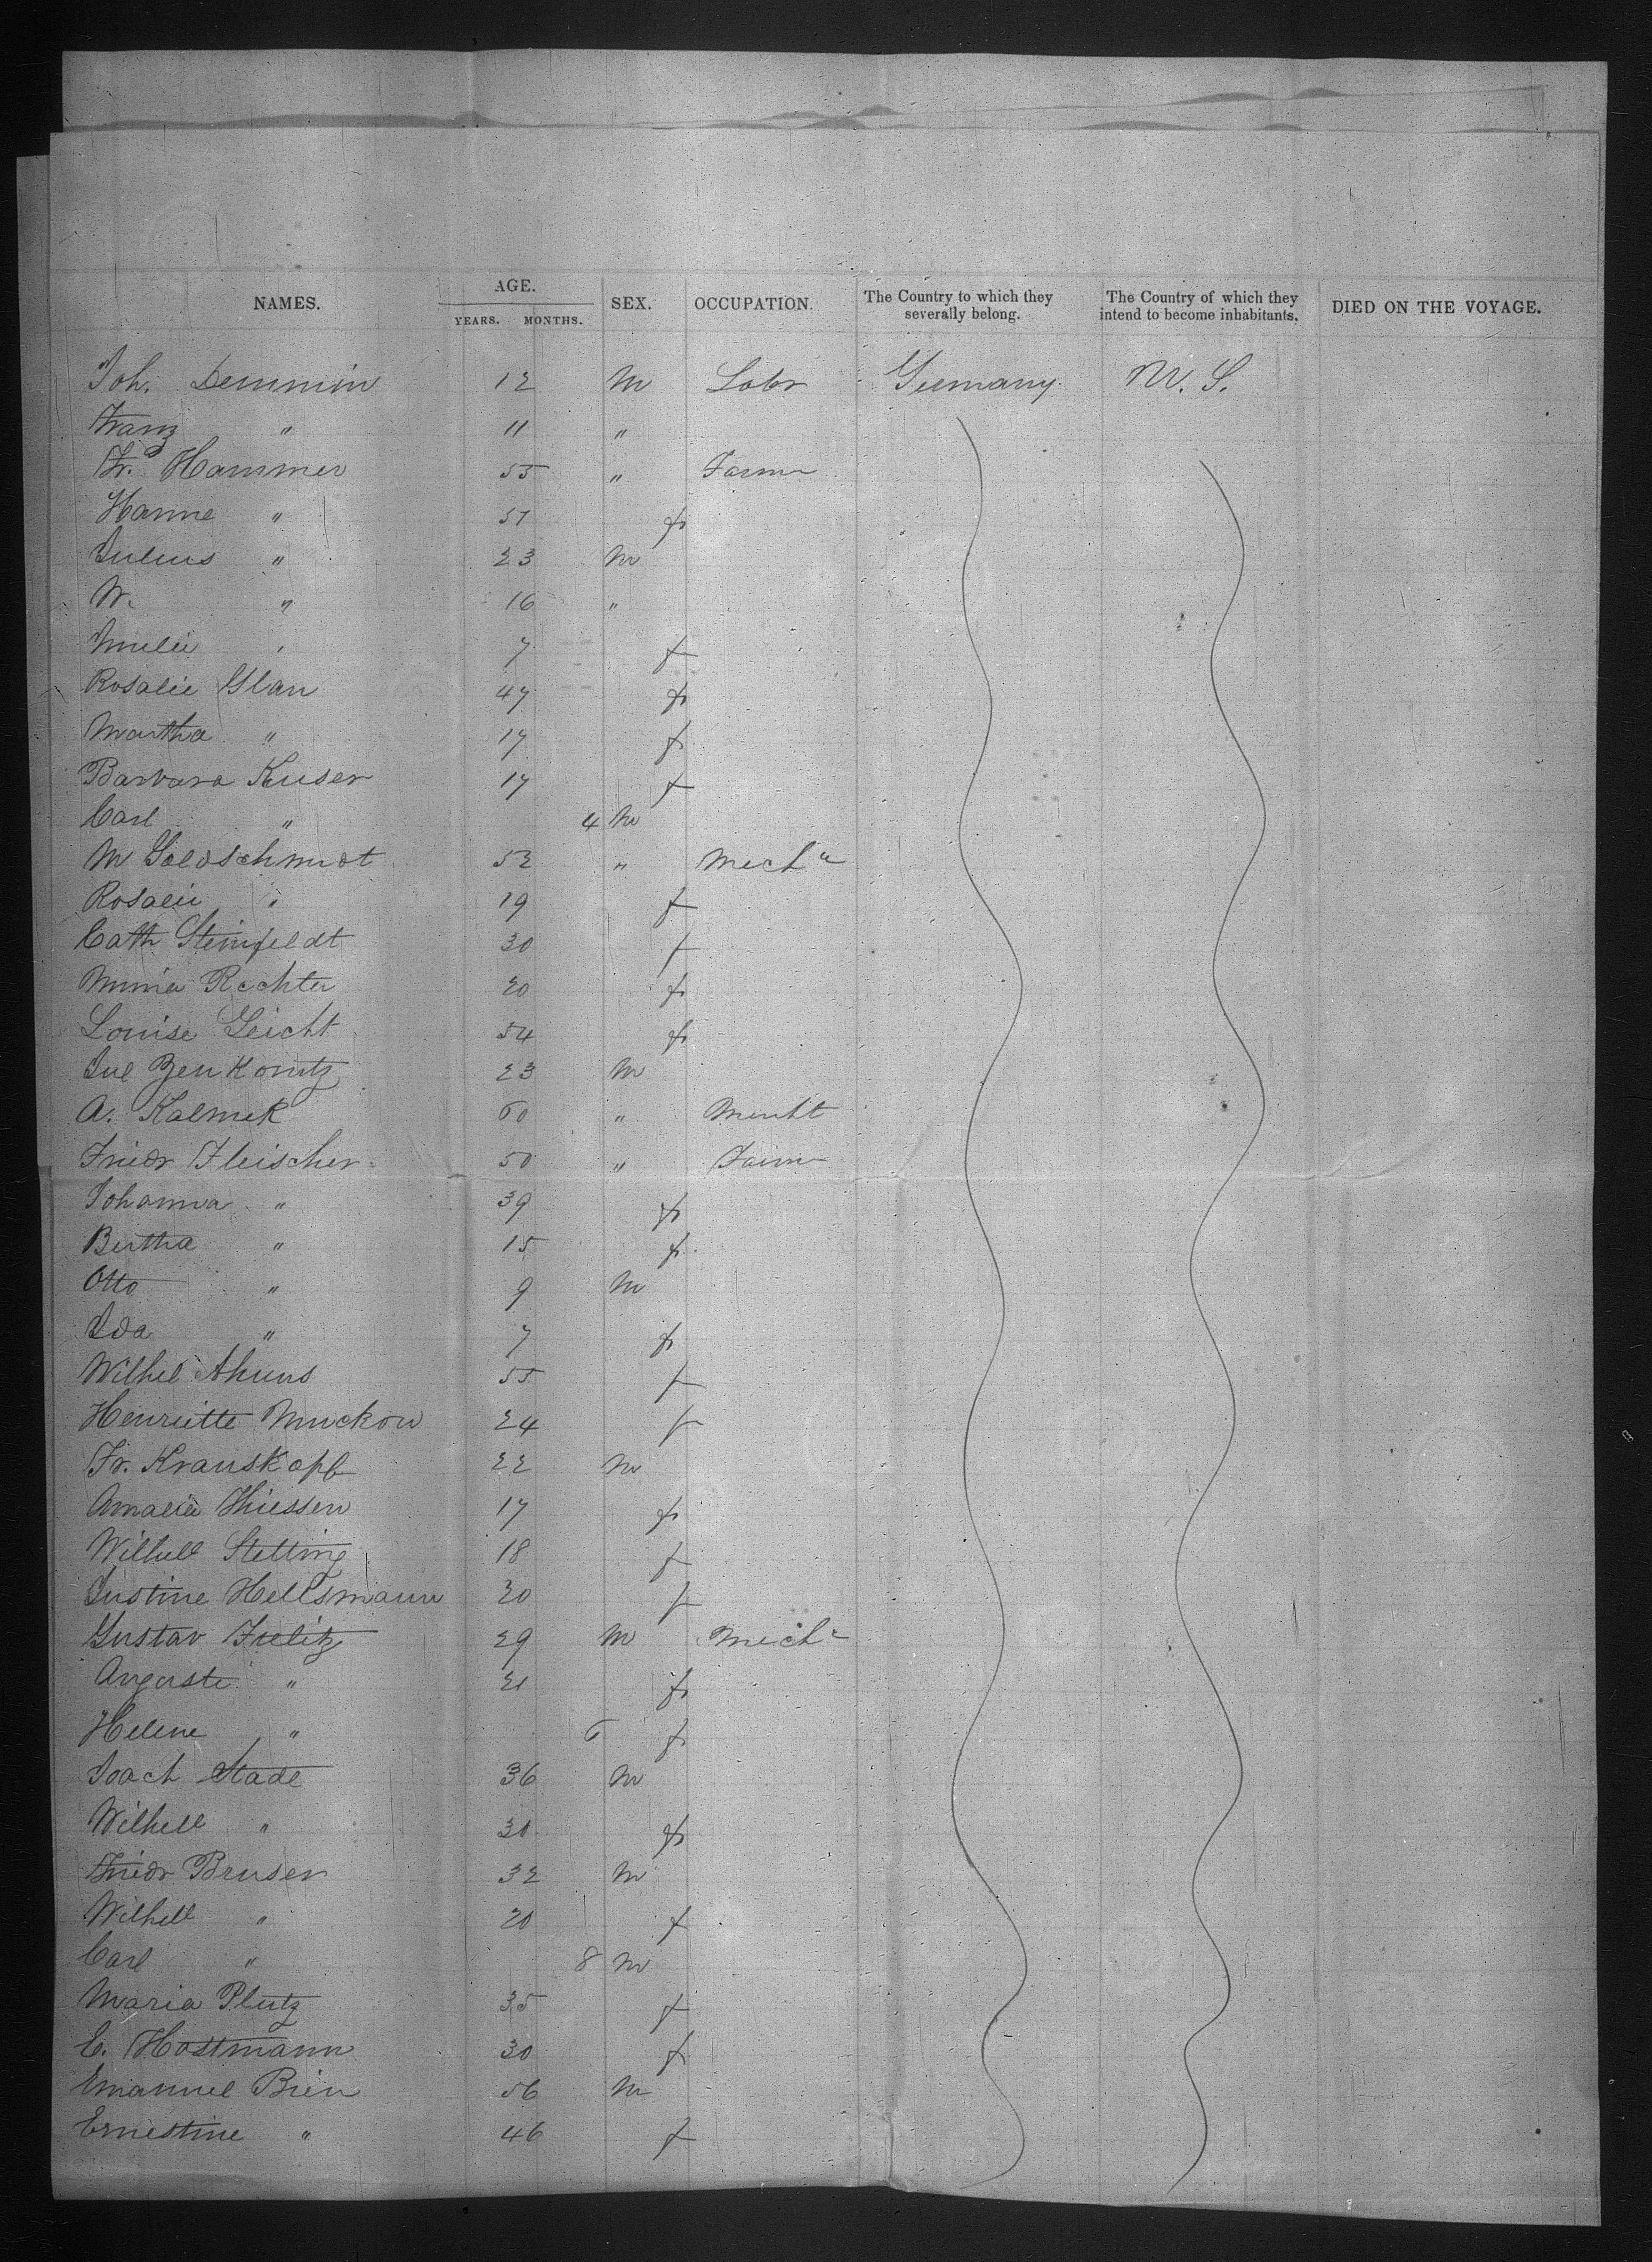 NAMES. AGE. SEX. OCCUPATION. The Country to which they severally belong. The Country of which they intend to become inhabitants. DIED ON THE VOYAGE.
YEARS. MONTHS.
Joh. Demmin 12 M Labr Germany U. S.
Franz " 11 "
Fr. Hammer 55 " Farmr
Hanne " 51 f
Julius " 23 M
W. " 16 "
" 7 f
Rosalie Glan 47 f
Martha " 17 f
Barbara Kuser 17 f
Carl " 4 M
M Goldschmidt 52 " Mech
Rosalie " 19 f
Cath Steinfeldt 30 f
Minna Rechter 20 f
Louise Leicht 54 f
Jul Zenkovitz 23 M
A. Kalmek 60 " Mercht
Friedr Fleischer 50 " Farmr
Johanna " 39 f
Bertha " 15 f
Otto " 9 M
Ida " 7 f
Wilhel Ahrens 55 f
Henriette Muckow 24 f
Fr. Krauskopf 22 M
Amalie Thiessen 17 f
Wilhell Stetting 18 f
Justine Hellsmann 20 f
Gustav Frelitz 29 M Mech
Auguste " 21 f
Helene " 6 f
Joach Stade 36 M
Wilhell " 30 f
Friedr Bruser 32 M
Wilhell " 20 f
Carl " 8 M
Maria Plutz 35 f
C. Hostmann 30 f
Emanuel Brien 56 M
Ernestine " 46 f